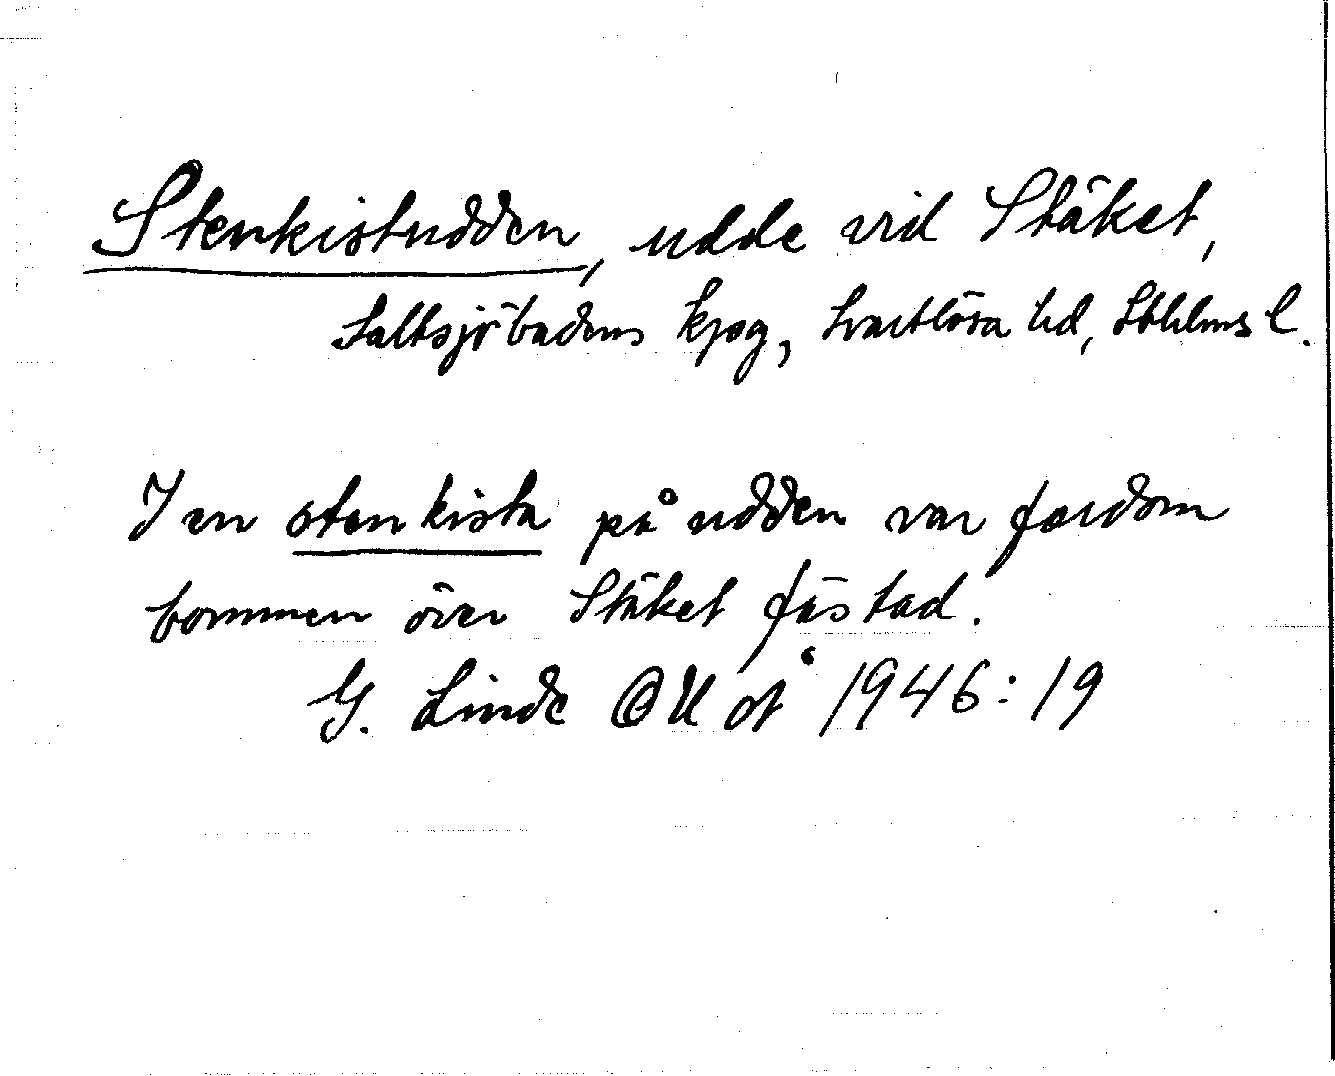 Stenkistudden, udde vid Stäket,
Saltsjöbadens kpsg, Svartlösa hd, Sthlms l.
I en stenkista på udden var fordom
bommen över Stäket fästad.
G. Linde 1946:19